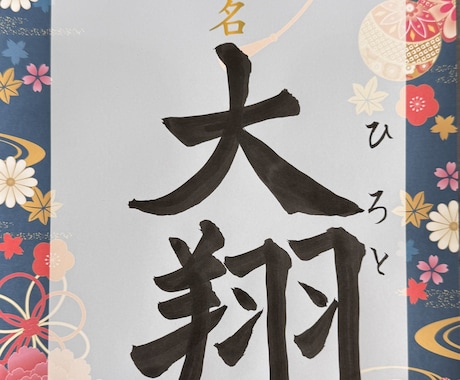 名
大翔
ひろと